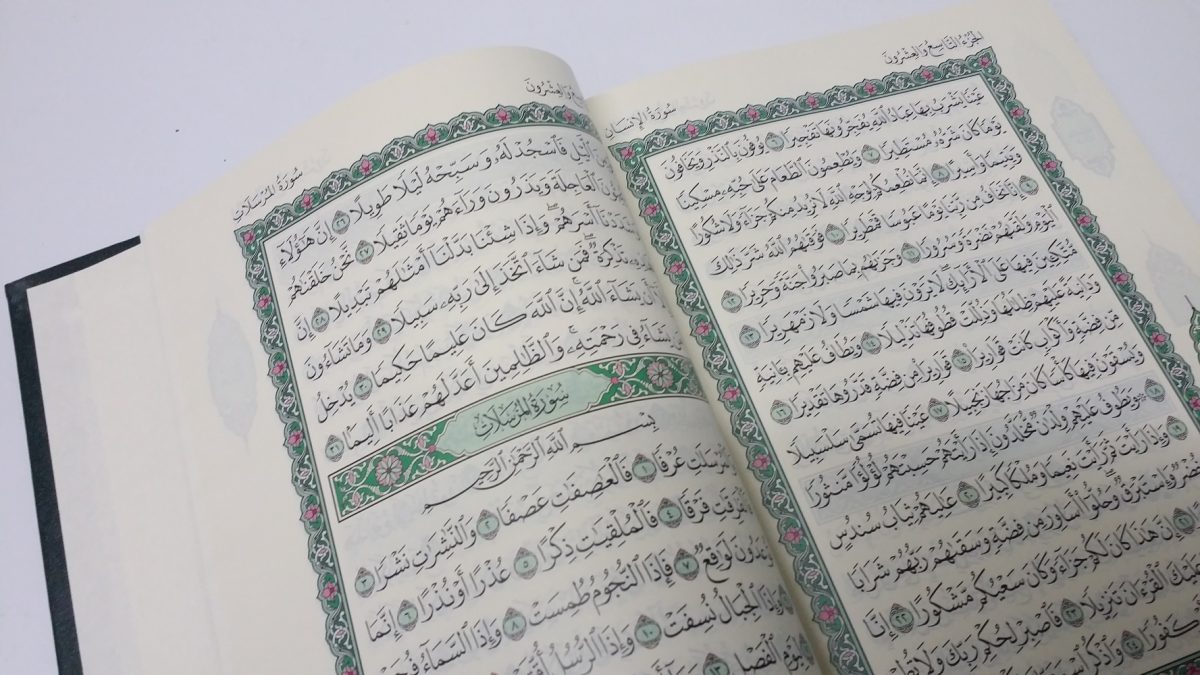 الجزء التاسع والعشرون
سورة الإنسان
عَيْنًا يَشْرَبُ بِهَا عِبَادُ ٱللَّهِ يُفَجِّرُونَهَا تَفْجِيرًا ٦ يُوفُونَ بِٱلنَّذْرِ وَيَخَافُونَ
يَوْمًا كَانَ شَرُّهُۥ مُسْتَطِيرًا ٧ وَيُطْعِمُونَ ٱلطَّعَامَ عَلَىٰ حُبِّهِۦ مِسْكِينًا
وَيَتِيمًا وَأَسِيرًا ٨ إِنَّمَا نُطْعِمُكُمْ لِوَجْهِ ٱللَّهِ لَا نُرِيدُ مِنكُمْ جَزَآءً وَلَا شُكُورًا
٩ إِنَّا نَخَافُ مِن رَّبِّنَا يَوْمًا عَبُوسًا قَمْطَرِيرًا ١٠ فَوَقَىٰهُمُ ٱللَّهُ شَرَّ ذَٰلِكَ
ٱلْيَوْمِ وَلَقَّىٰهُمْ نَضْرَةً وَسُرُورًا ١١ وَجَزَىٰهُم بِمَا صَبَرُوا۟ جَنَّةً وَحَرِيرًا ١٢
مُّتَّكِـِٔينَ فِيهَا عَلَى ٱلْأَرَآئِكِ لَا يَرَوْنَ فِيهَا شَمْسًا وَلَا زَمْهَرِيرًا ١٣
وَدَانِيَةً عَلَيْهِمْ ظِلَٰلُهَا وَذُلِّلَتْ قُطُوفُهَا تَذْلِيلًا ١٤ وَيُطَافُ عَلَيْهِم بِـَٔانِيَةٍ
مِّن فِضَّةٍ وَأَكْوَابٍ كَانَتْ قَوَارِيرَا۠ ١٥ قَوَارِيرَا۟ مِن فِضَّةٍ قَدَّرُوهَا تَقْدِيرًا ١٦
وَيُسْقَوْنَ فِيهَا كَأْسًا كَانَ مِزَاجُهَا زَنجَبِيلًا ١٧ عَيْنًا فِيهَا تُسَمَّىٰ سَلْسَبِيلًا
١٨ وَيَطُوفُ عَلَيْهِمْ وِلْدَٰنٌ مُّخَلَّدُونَ إِذَا رَأَيْتَهُمْ حَسِبْتَهُمْ لُؤْلُؤًا مَّنثُورًا
١٩ وَإِذَا رَأَيْتَ ثَمَّ رَأَيْتَ نَعِيمًا وَمُلْكًا كَبِيرًا ٢٠ عَٰلِيَهُمْ ثِيَابُ سُندُسٍ
خُضْرٌ وَإِسْتَبْرَقٌ وَحُلُّوٓا۟ أَسَاوِرَ مِن فِضَّةٍ وَسَقَىٰهُمْ رَبُّهُمْ شَرَابًا
٢١ إِنَّ هَٰذَا كَانَ لَكُمْ جَزَآءً وَكَانَ سَعْيُكُم مَّشْكُورًا ٢٢ إِنَّا
عَلَيْكَ ٱلْقُرْءَانَ تَنزِيلًا ٢٣ فَٱصْبِرْ لِحُكْمِ رَبِّكَ وَلَا تُطِعْ
كَفُورًا ٢٤ وَٱذْكُرِ
والعشرون
سورة المرسلات
ٱلَّيْلِ فَٱسْجُدْ لَهُۥ وَسَبِّحْهُ لَيْلًا طَوِيلًا ٢٦ إِنَّ هَٰٓؤُلَآءِ
ٱلْعَاجِلَةَ وَيَذَرُونَ وَرَآءَهُمْ يَوْمًا ثَقِيلًا ٢٧ نَّحْنُ خَلَقْنَٰهُمْ
وَشَدَدْنَآ أَسْرَهُمْ وَإِذَا شِئْنَا بَدَّلْنَآ أَمْثَٰلَهُمْ تَبْدِيلًا ٢٨ إِنَّ
تَذْكِرَةٌ فَمَن شَآءَ ٱتَّخَذَ إِلَىٰ رَبِّهِۦ سَبِيلًا ٢٩ وَمَا تَشَآءُونَ
أَن يَشَآءَ ٱللَّهُ إِنَّ ٱللَّهَ كَانَ عَلِيمًا حَكِيمًا ٣٠ يُدْخِلُ
يَشَآءُ فِى رَحْمَتِهِۦ وَٱلظَّٰلِمِينَ أَعَدَّ لَهُمْ عَذَابًا أَلِيمًۢا ٣١
سورة المرسلات
بِسْمِ ٱللَّهِ ٱلرَّحْمَٰنِ ٱلرَّحِيمِ
عُرْفًا ١ فَٱلْعَٰصِفَٰتِ عَصْفًا ٢ وَٱلنَّٰشِرَٰتِ نَشْرًا ٣
فَرْقًا ٤ فَٱلْمُلْقِيَٰتِ ذِكْرًا ٥ عُذْرًا أَوْ نُذْرًا ٦ إِنَّمَا
تُوعَدُونَ لَوَٰقِعٌ ٧ فَإِذَا ٱلنُّجُومُ طُمِسَتْ ٨ وَإِذَا ٱلسَّمَآءُ
وَإِذَا ٱلْجِبَالُ نُسِفَتْ ١٠ وَإِذَا ٱلرُّسُلُ
لِيَوْمِ ٱلْفَصْلِ ١٣